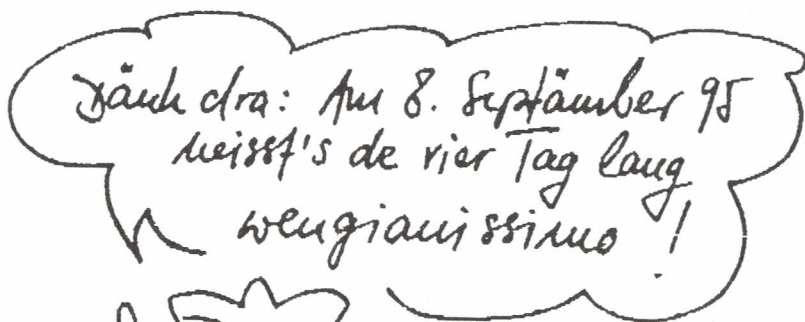 Dänk dra: Am 8. Septämber 95
heisst's de vier Tag lang
wengianissimo!